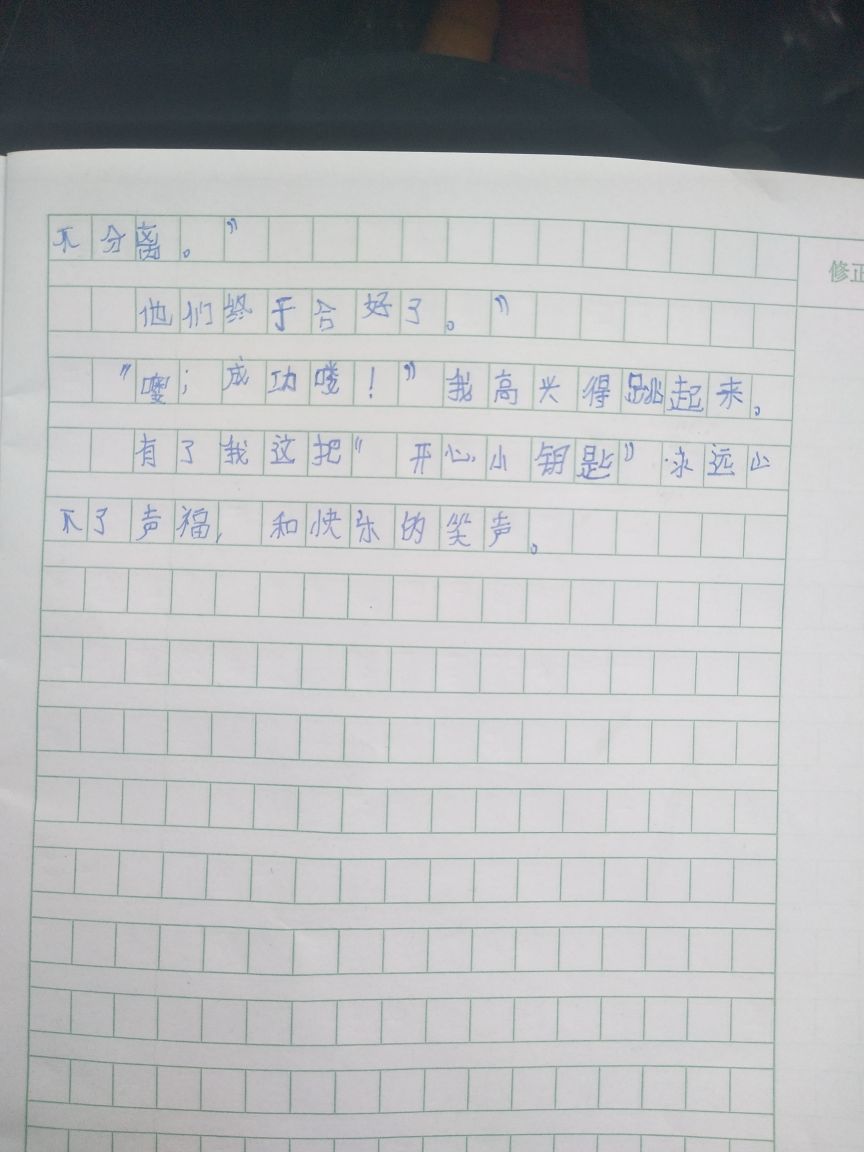 不分离。”
他们终于合好了。”
“喽；成功喽！”我高兴得跳起来。
有了我这把“开心小钥匙”永远少
不了声福，和快乐的笑声。
修正